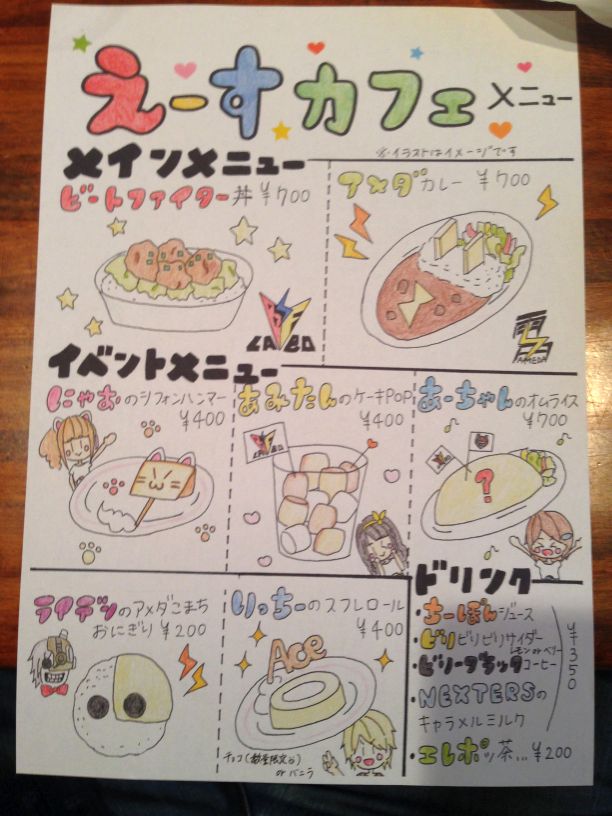 えーすカフェ メニュー
※イラストはイメージです
メインメニュー
ビートファイター丼 ¥700
アメダカレー ¥700
LABO
AMEDA
イベントメニュー
にゃおのシフォンハンマー
¥400
あみたんのケーキPOP
¥400
LABO
あーちゃんのオムライス
¥700
?
ライデンのアメダこまち
おにぎり ¥200
りっちーのスフレロール
¥400
Ace
チョコ(数量限定)
or バニラ
ドリンク
・ちーぽんジュース
・ビリビリビリサイダー
レモン or ベリー
・ビリーブラックコーヒー
・NEXTERSの
キャラメルミルク
¥350
・エレポッ茶…¥200